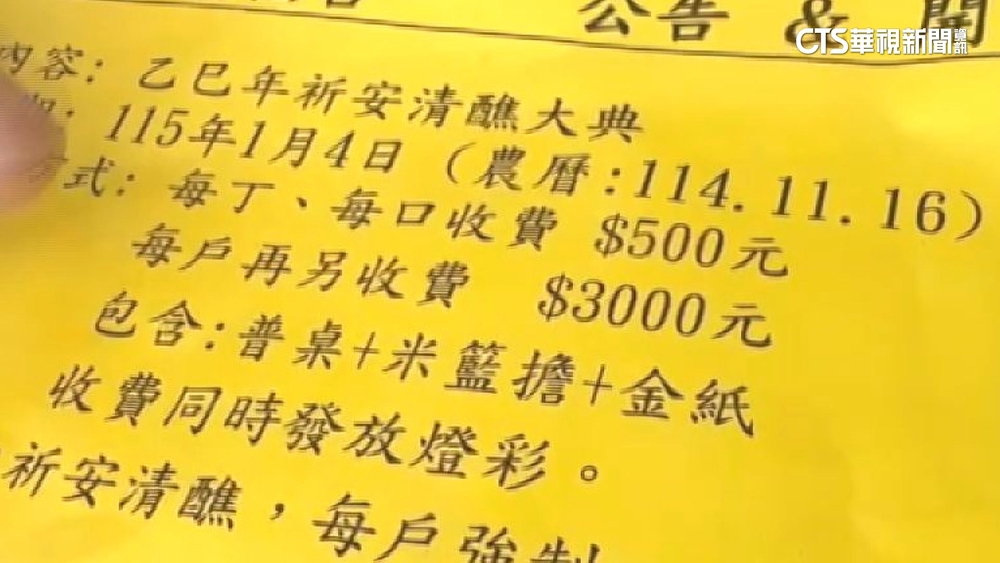 公告 & 開
CTS華視新聞資訊
內容: 乙巳年祈安清醮大典
115年1月4日 (農曆:114.11.16)
式: 每丁、每口收費 $500元
每戶再另收費 $3000元
包含:普桌+米籃擔+金紙
收費同時發放燈彩。
祈安清醮,每戶強制